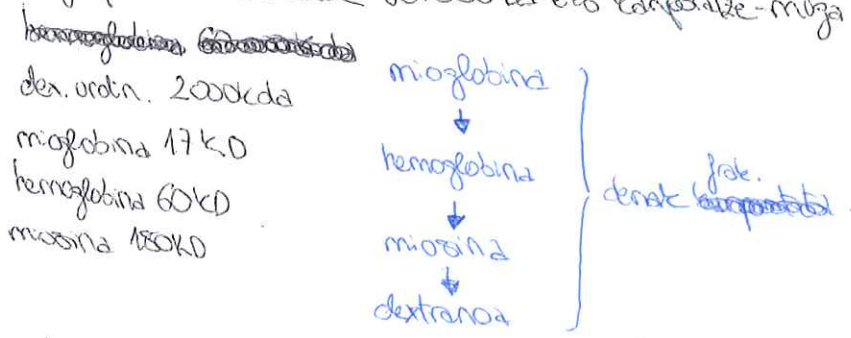 kanporatze-muga
dex. urdin. 2000kda
mioglobina 17KD
hemoglobina 60KD
miosina 180KD
mioglobina
hemoglobina
miosina
dextranoa
denak frak.